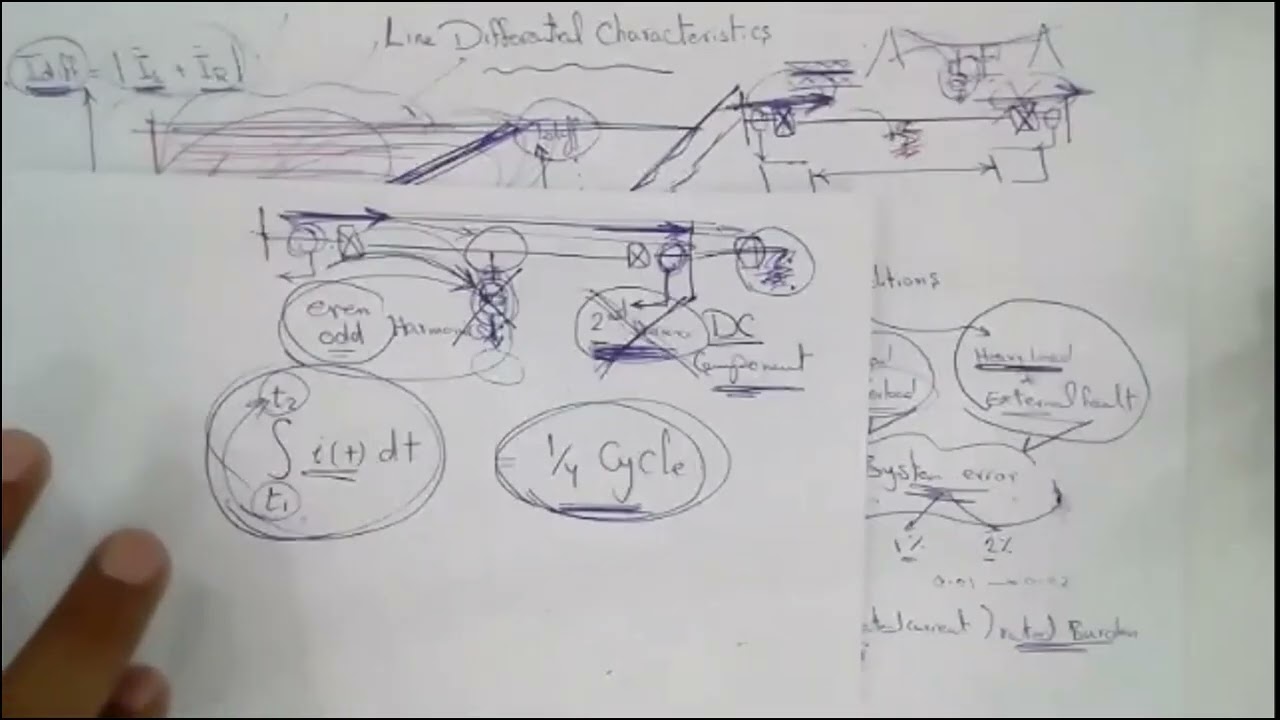 Line Differential Characteristics
Idiff = | IL + IR |
Idiff
even
odd
Harmonic
2nd
DC
Component
t2
∫ i(t) dt
t1
1/4 Cycle
ditions
Heavy load
+
External fault
load
System error
1% 2%
0.01 → 0.02
ated current ) rated Burden